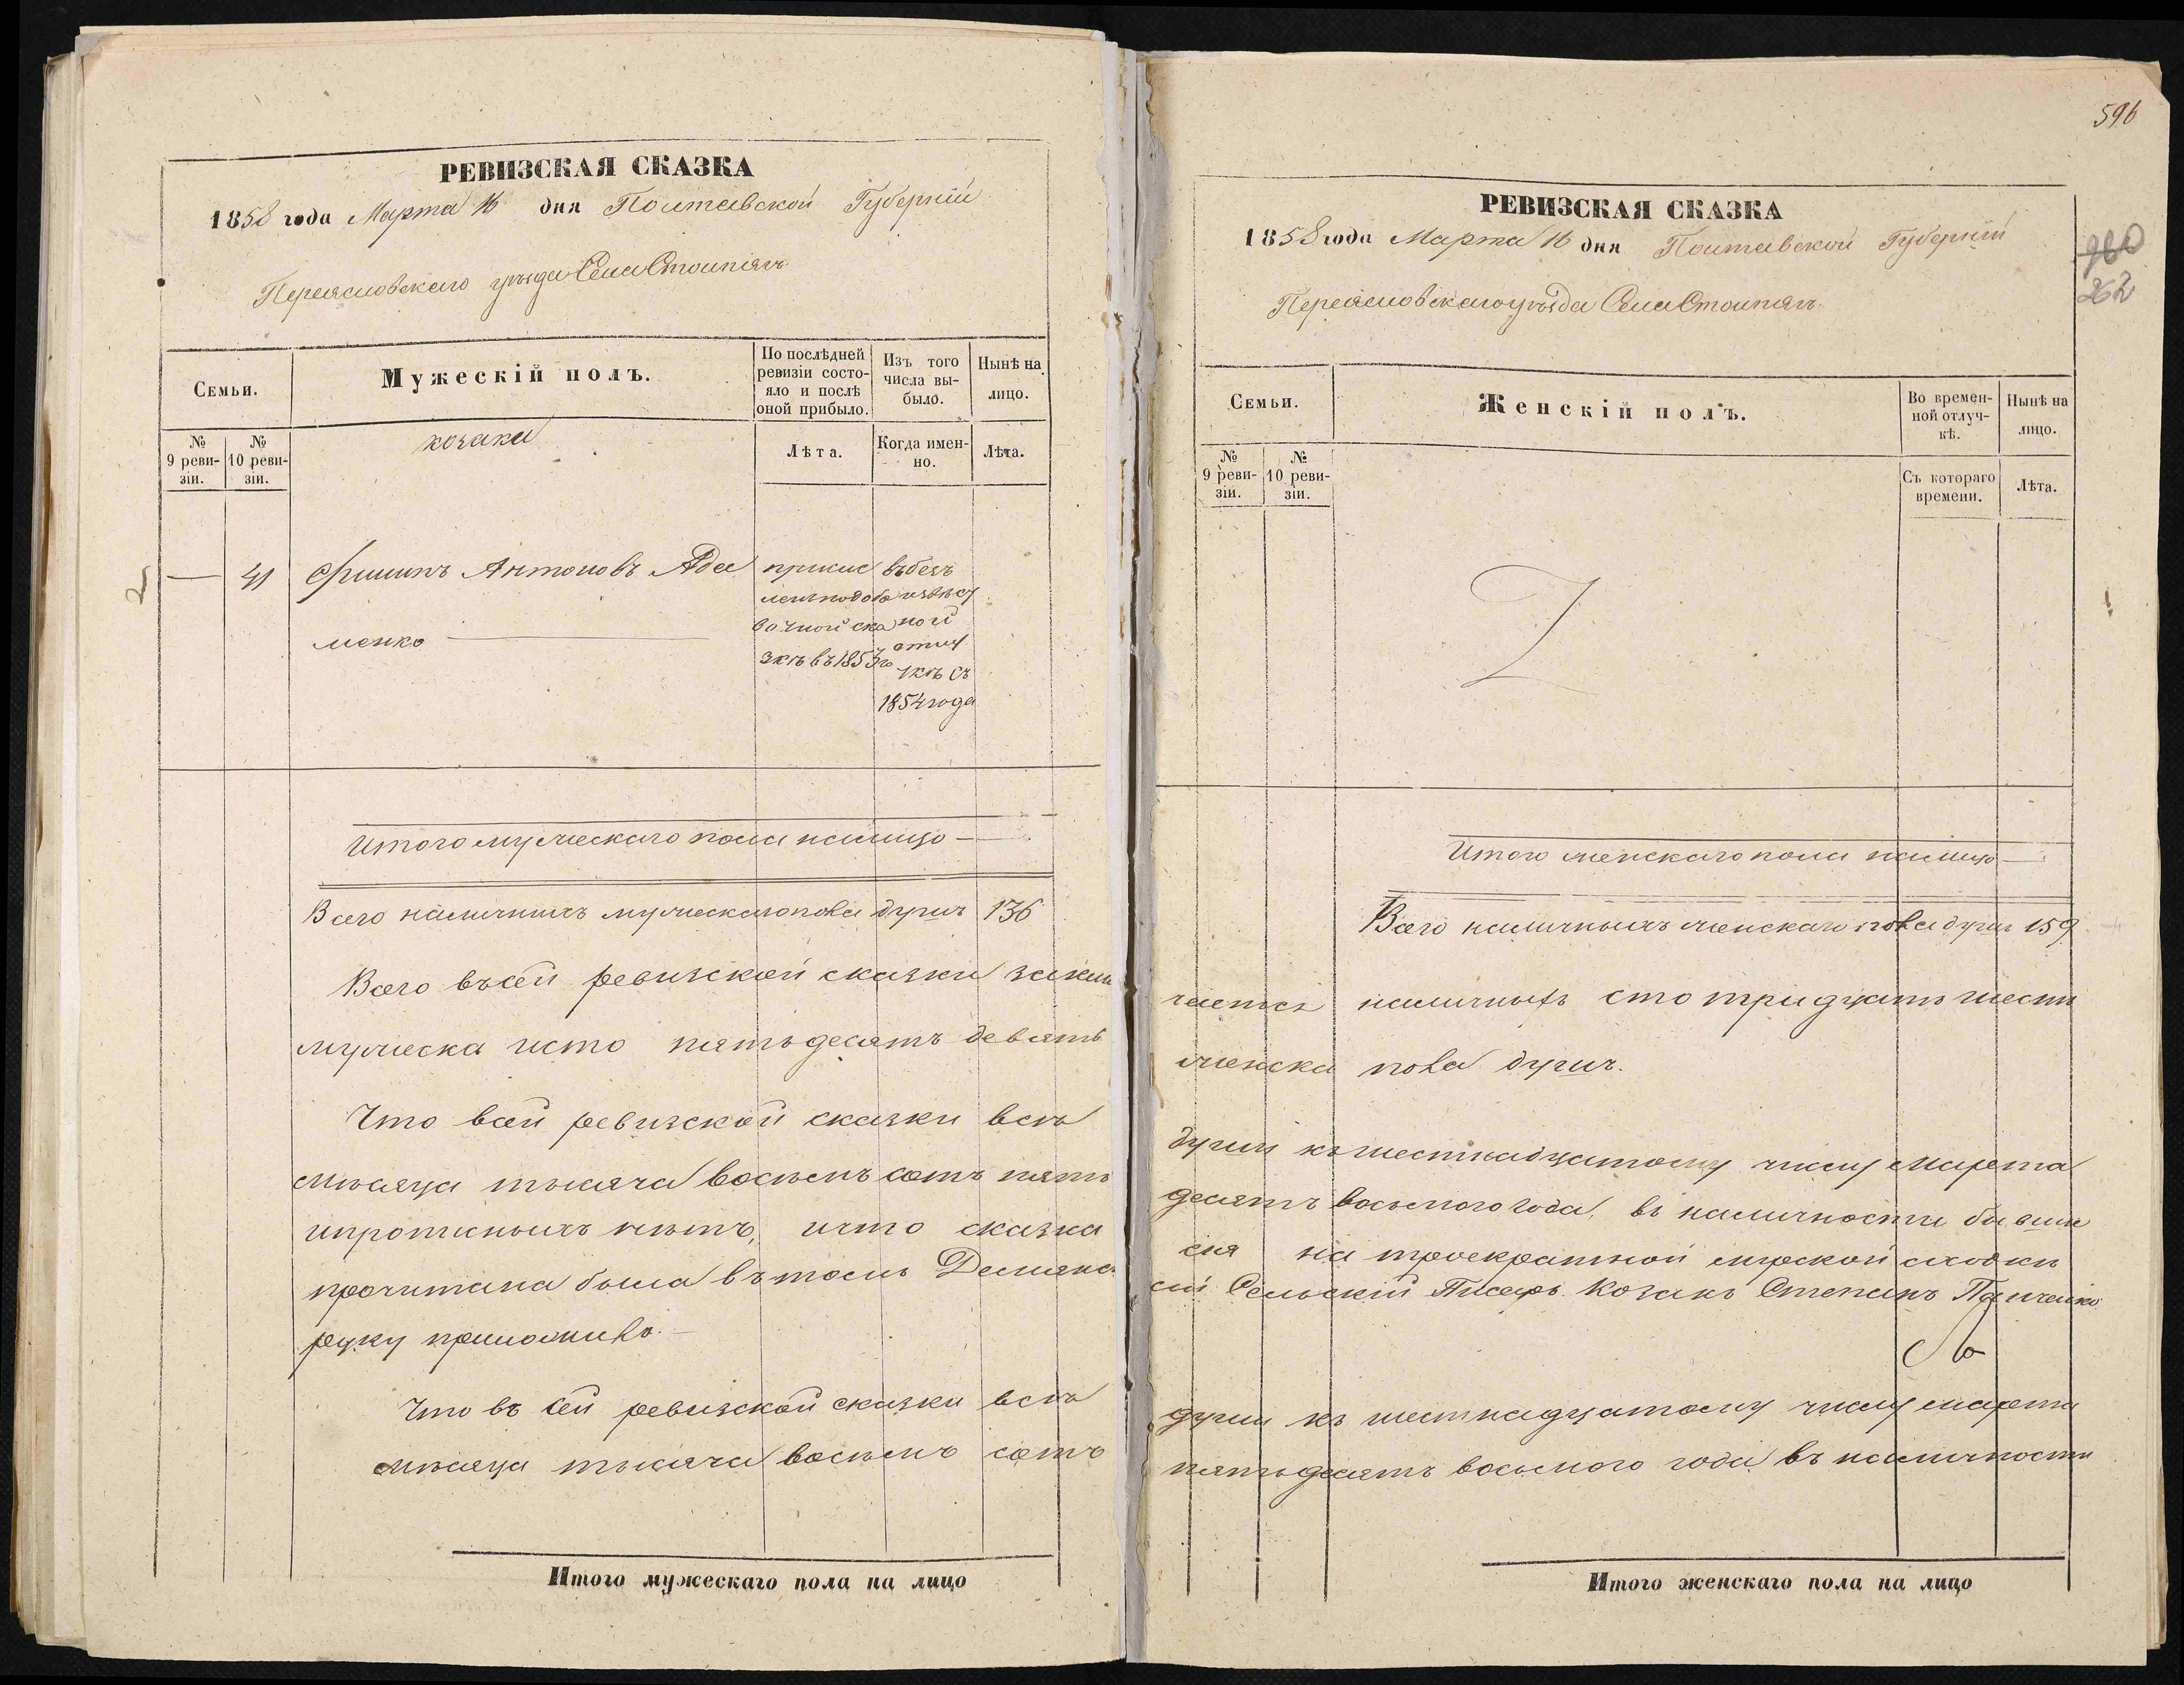 РЕВИЗСКАЯ СКАЗКА
1858 года Марта 16 дня Полтавской Губерніи
Переясловскаго уѣзда Села Столпягъ
Семьи.
Мужескій полъ.
По послѣдней ревизіи состояло и послѣ оной прибыло.
Изъ того числа выбыло.
Нынѣ на лицо.
№ 9 ревизіи.
№ 10 ревизіи.
козаки
Лѣта.
Когда именно.
Лѣта.
2
— 41 Филипъ Антоновъ Ада
менко
причис
ленъ подоба
вочной ска
зкѣ въ 1853 го
въ безъ
извѣст
ной
отлу
чкѣ съ
1854 года
Итого мужескаго пола налицо —
Всего наличныхъ мужескаго пола душъ 136
Всего въ сей ревизской сказки заклю
мужеска исто пятьдесятъ девять
Что всей ревизской сказки всѣ
мѣсяца тысяча восьемъ сотъ пять
ипрописныхъ нѣтъ, ичто сказка
прочитана была въ томъ
руку приложилъ.
Что въ сей ревизской сказки всѣ
мѣсяца тысяча восьемъ сотъ
Итого мужескаго пола на лицо
596
РЕВИЗСКАЯ СКАЗКА
1858 года Марта 16 дня Полтавской Губерніи
Переясловскаго уѣзда Села Столпягъ.
262
Семьи.
Женскій полъ.
Во временной отлучкѣ.
Нынѣ на лицо.
№ 9 ревизіи.
№ 10 ревизіи.
Съ котораго времени.
Лѣта.
Итого женскаго пола налицо —
Всего наличныхъ женскаго пола душъ 159
чается наличныхъ сто тридцать шесть
женска пола душъ.
души къ шестнадцатому числу Марта
десятъ восьмого года, въ наличности бывше
сія на троекратной мірской сходки
Сельскій Писарь Козакъ Степанъ
души къ шестнадцатому числу марта
пятьдесятъ восьмого года въ наличности
Итого женскаго пола на лицо